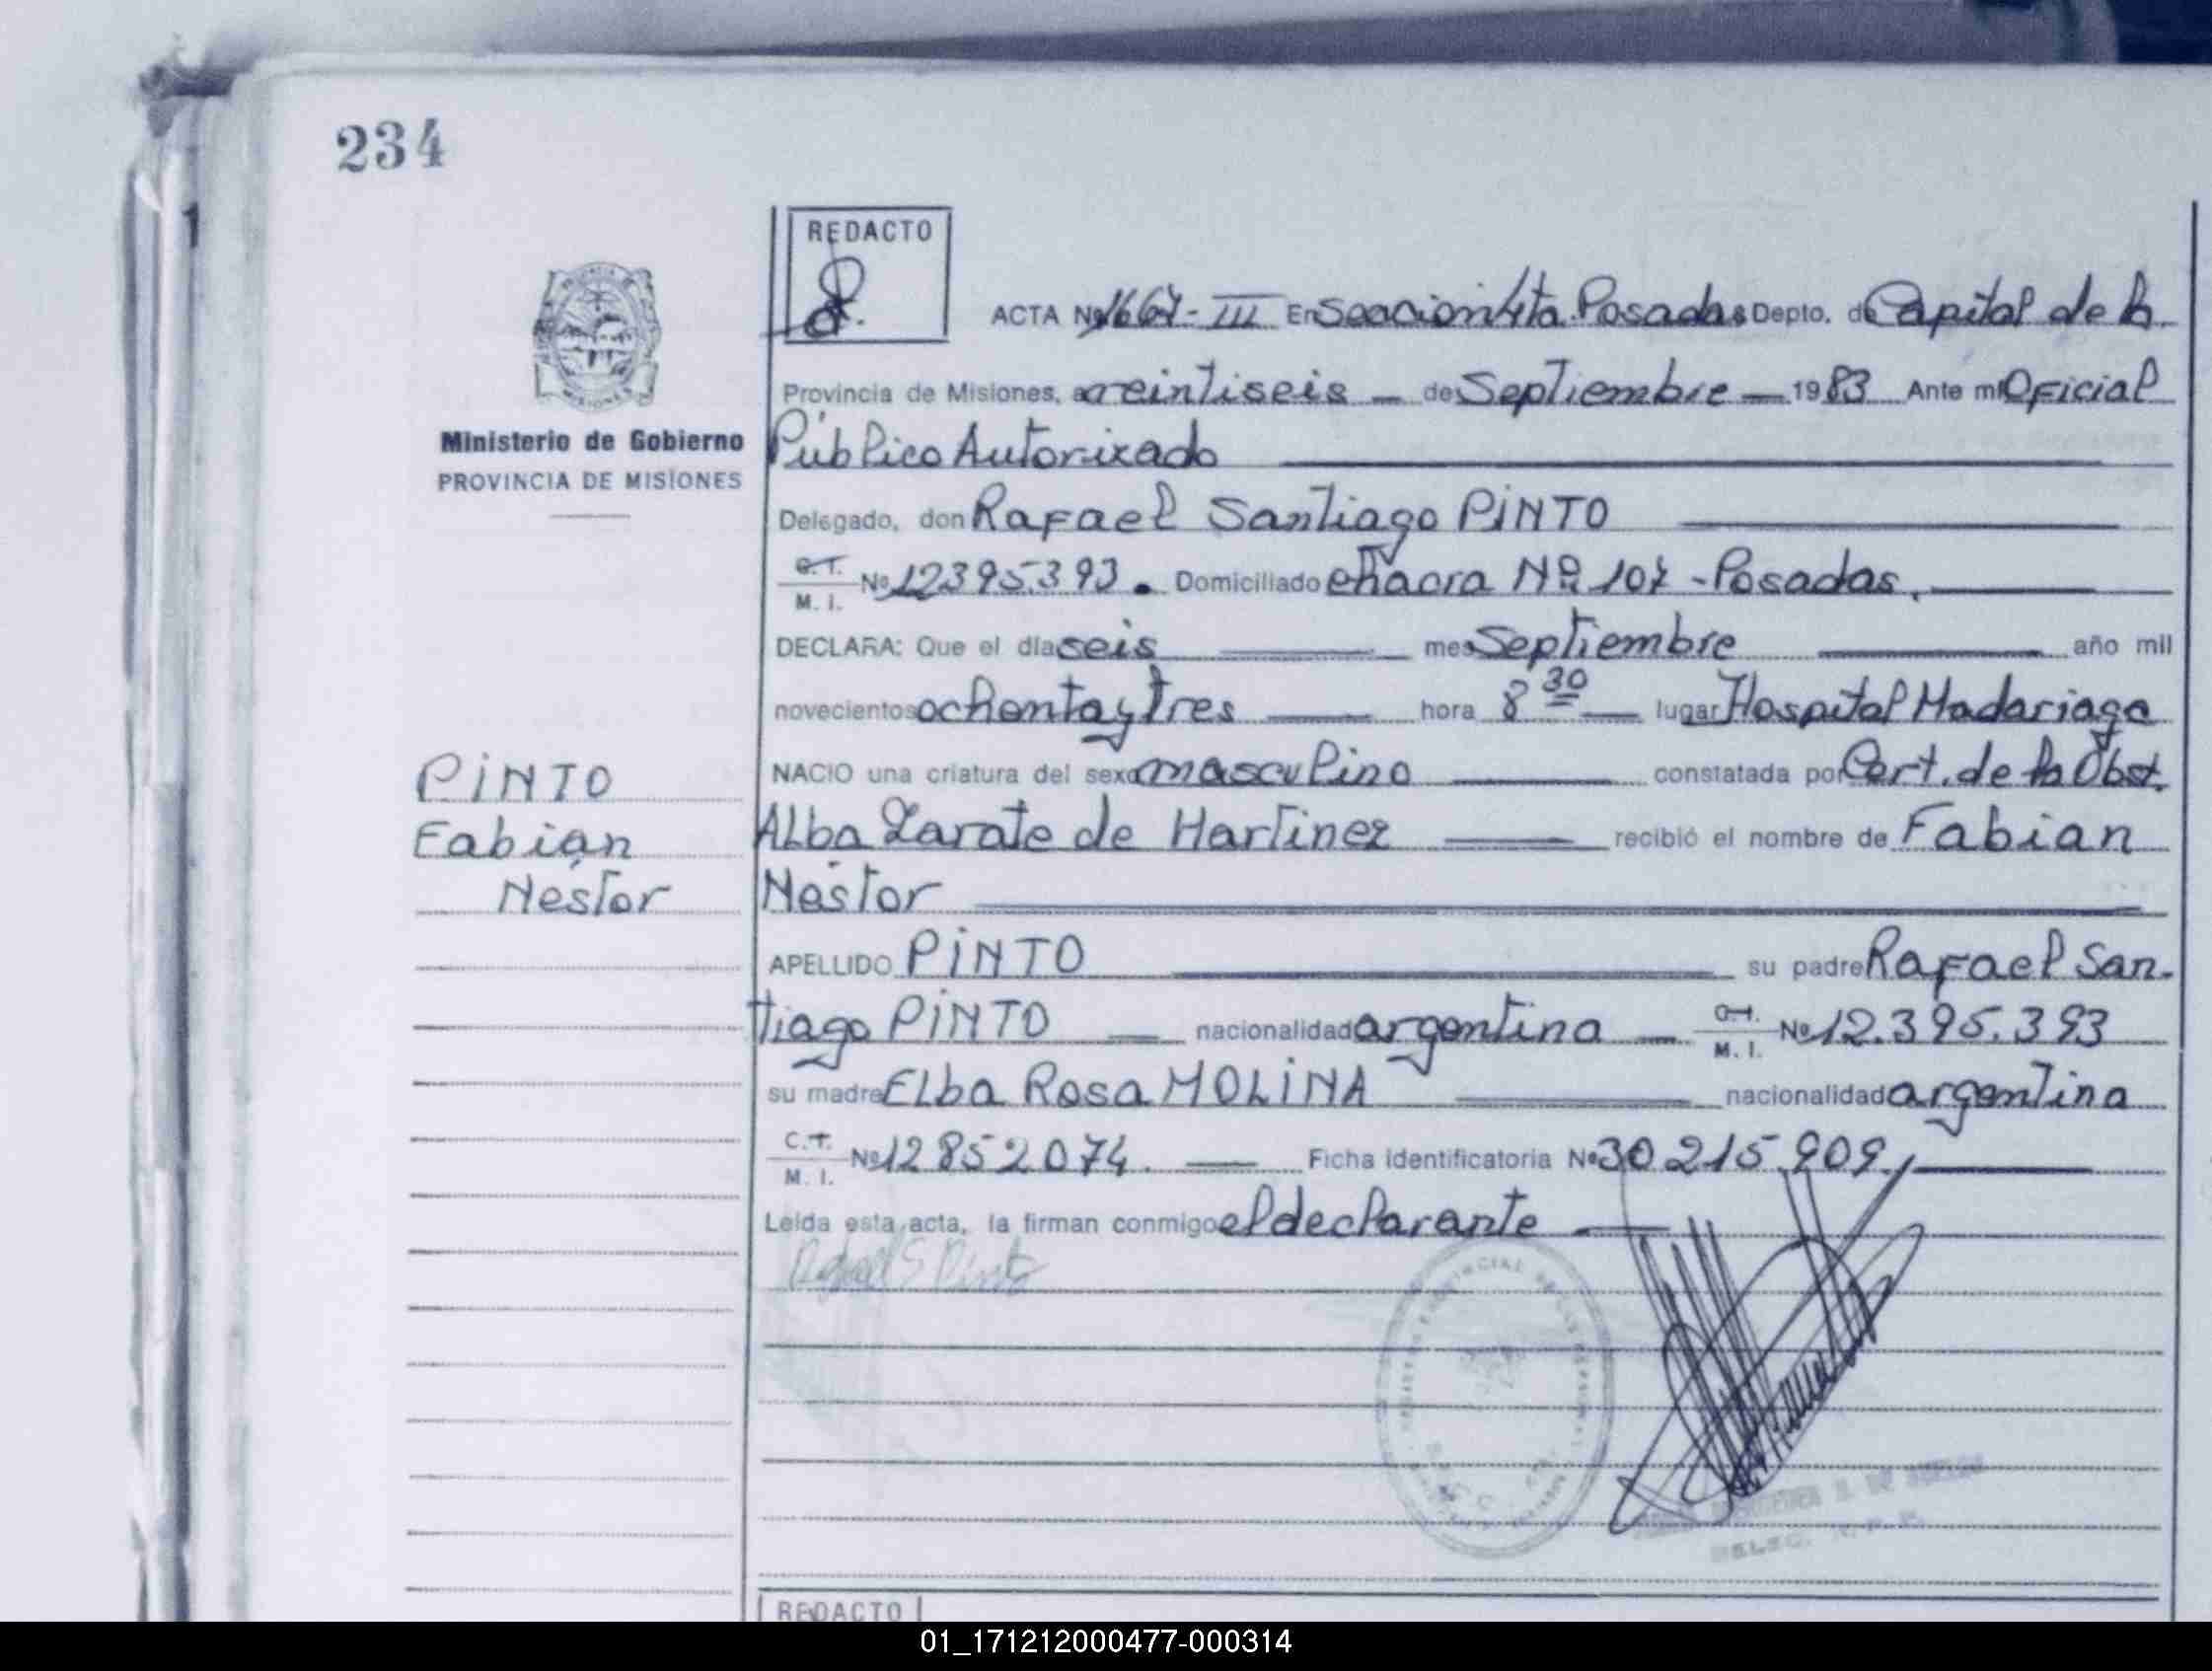 234
REDACTO
ACTA Nº 1667-III En Seccion 4ta. Posadas Depto. de Capital de la
Provincia de Misiones, a veintiseis — de Septiembre — 1983 Ante mi Oficial
Ministerio de Gobierno
Público Autorizado
PROVINCIA DE MISIONES
Delegado, don Rafael Santiago PINTO
C.I.
M. I. Nº 12395.393. Domiciliado chacra Nº 107 - Posadas.
DECLARA: Que el día seis mes Septiembre año mil
novecientos ochenta y tres hora 8 30 lugar Hospital Madariaga
PINTO
NACIO una criatura del sexo masculino constatada por Cert. de la Obst.
Fabian
Alba Zarate de Martinez recibió el nombre de Fabian
Nestor
Nestor
APELLIDO PINTO su padre Rafael San-
tiago PINTO — nacionalidad argentina — C.I. M. I. Nº 12.395.393
su madre Elba Rosa MOLINA nacionalidad argentina
C.I.
M. I. Nº 12852074. — Ficha identificatoria Nº 30215.909.
Leída esta acta, la firman conmigo el declarante
Rafael S Pinto
REDACTO
01_171212000477-000314